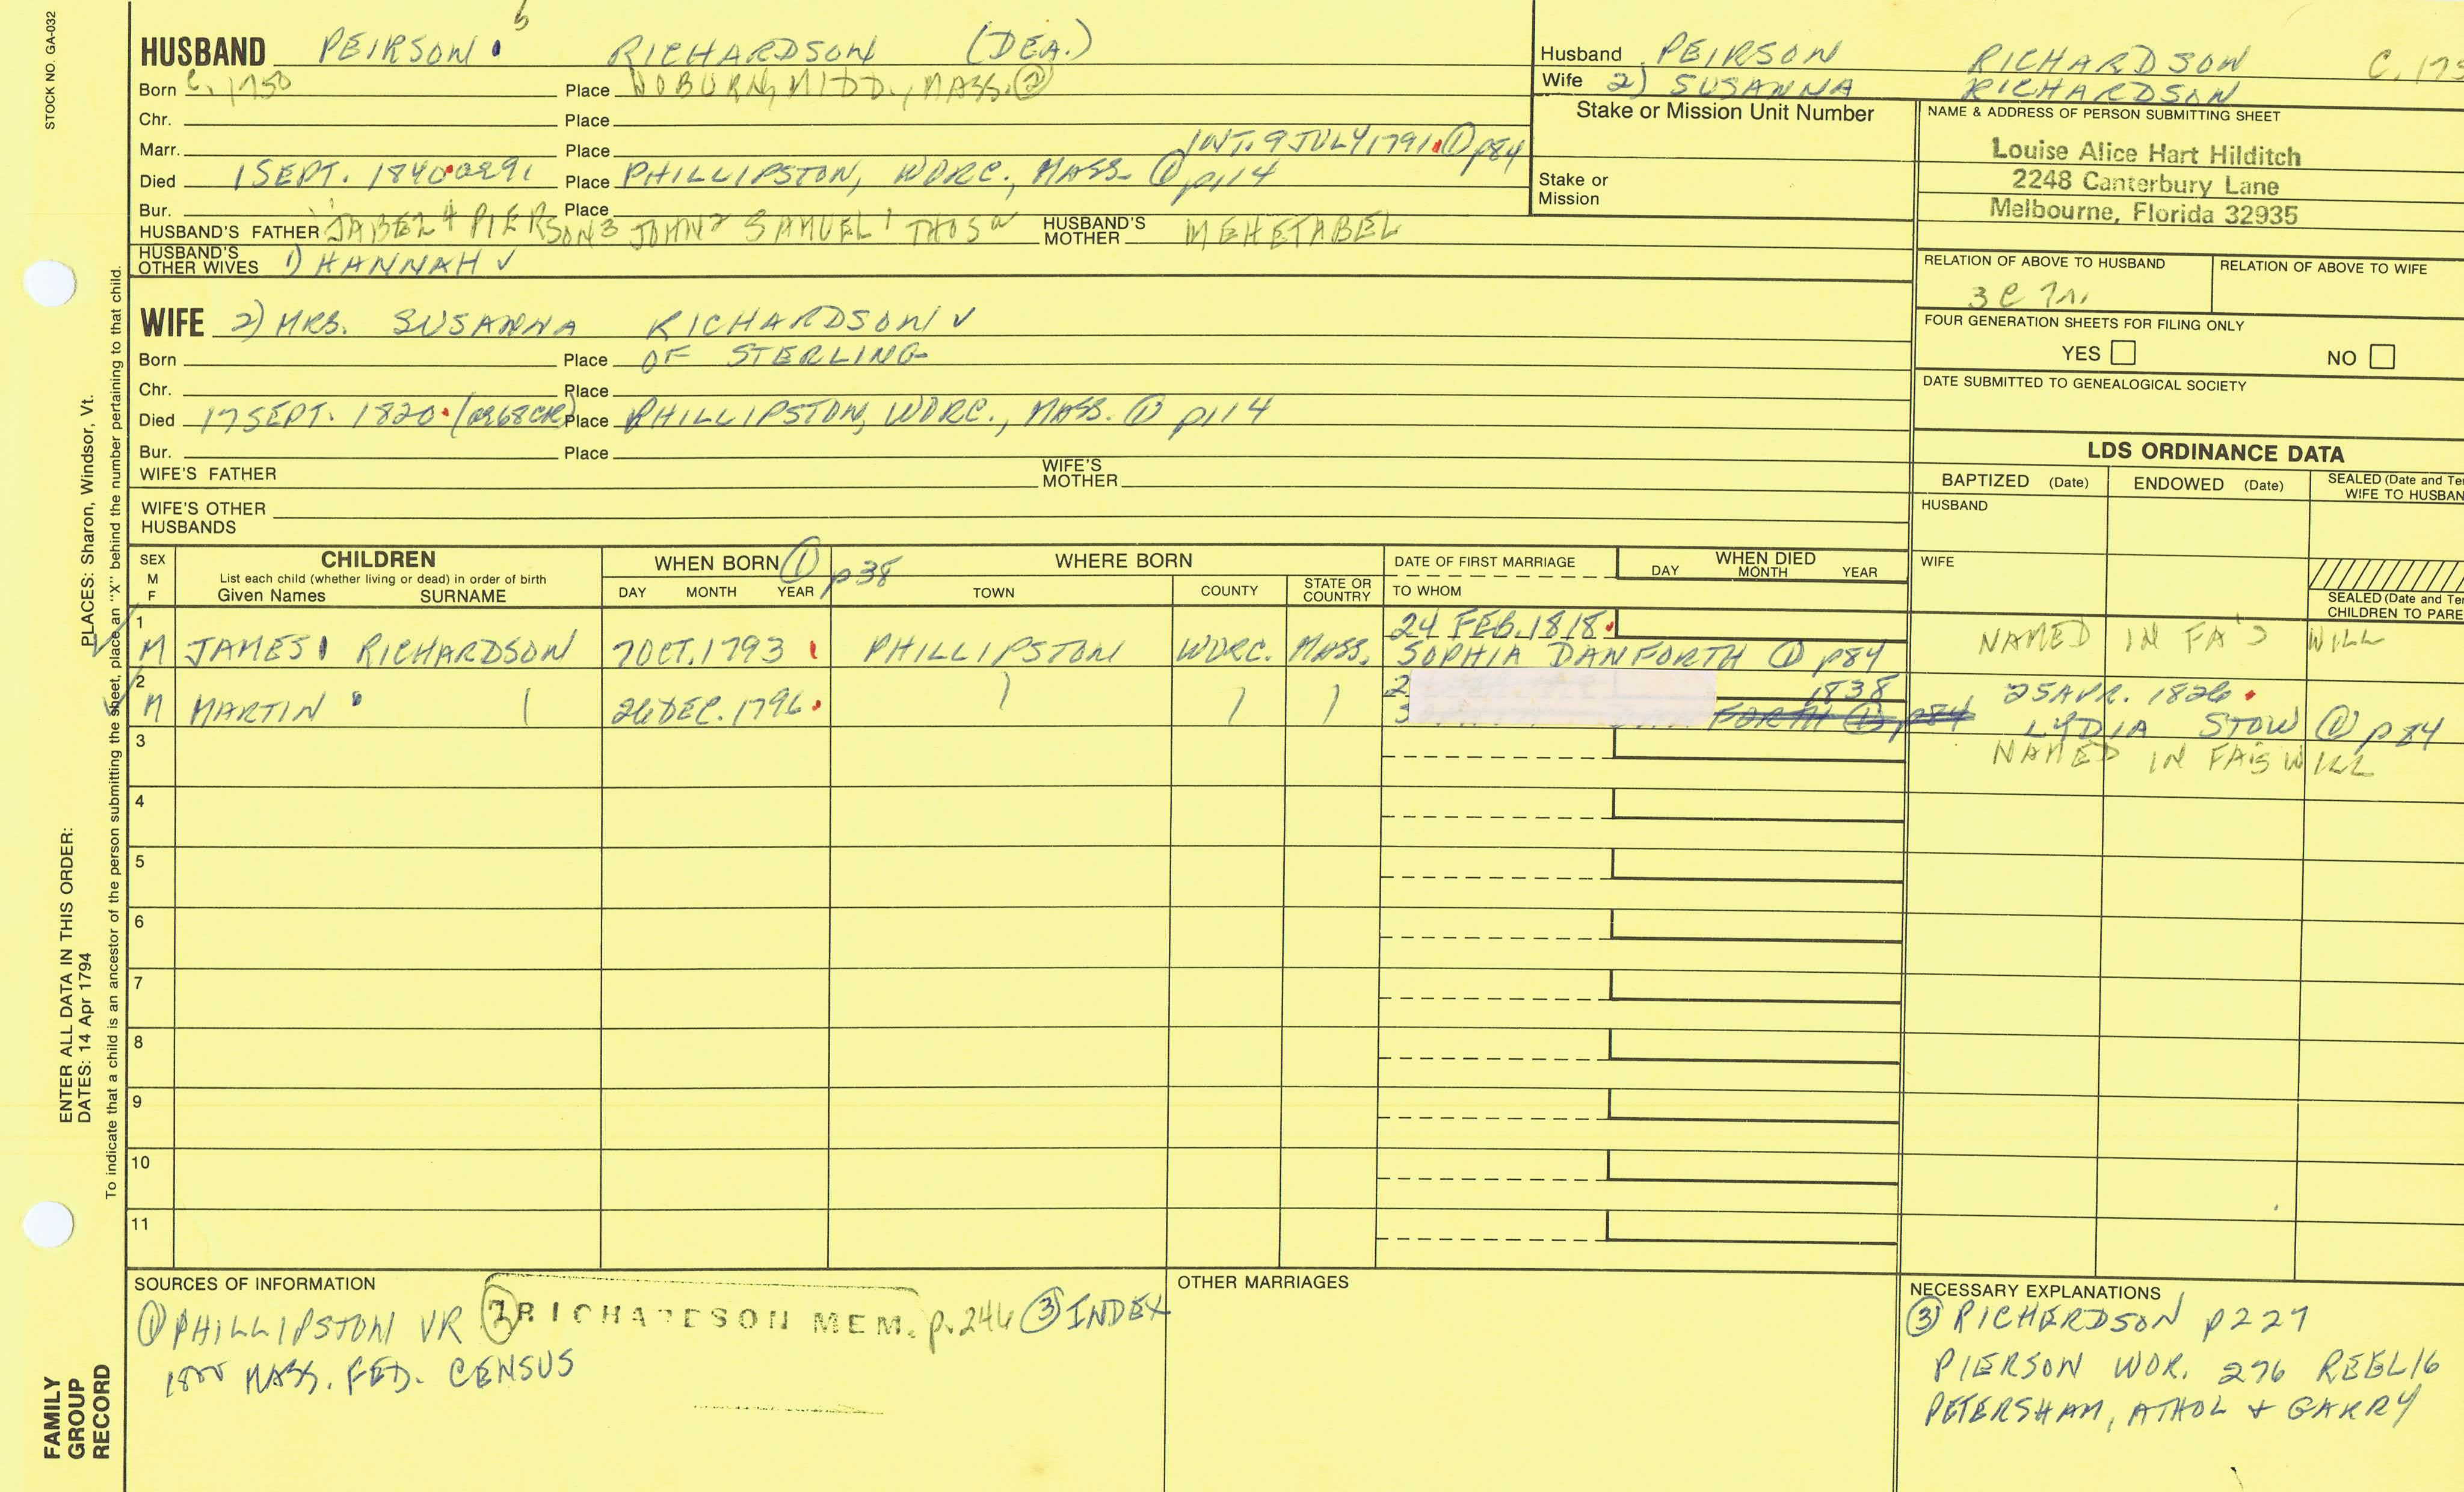 STOCK NO. GA-032
5
HUSBAND PEIRSON RICHARDSON (DEA.)
Born C. 1750 Place WOBURN, MIDD., MASS. ②
Chr. Place
Marr. Place INT. 9 JULY 1791 ① p84
Died 1 SEPT. 1840 a91 Place PHILLIPSTON, WORC., MASS. ① p114
Bur. Place
HUSBAND'S FATHER JABEZ 4 PIERSON 3 JOHN 2 SAMUEL 1 THOS a HUSBAND'S MOTHER MEHETABEL
HUSBAND'S OTHER WIVES 1) HANNAH √
WIFE 2) MRS. SUSANNA RICHARDSON √
Born Place OF STERLING
Chr. Place
Died 17 SEPT. 1820 (a68CR) Place PHILLIPSTON, WORC., MASS. ① p114
Bur. Place
WIFE'S FATHER WIFE'S MOTHER
WIFE'S OTHER HUSBANDS
Husband PEIRSON RICHARDSON C. 175
Wife 2) SUSANNA RICHARDSON
Stake or Mission Unit Number
Stake or Mission
NAME & ADDRESS OF PERSON SUBMITTING SHEET
Louise Alice Hart Hilditch
2248 Canterbury Lane
Melbourne, Florida 32935
RELATION OF ABOVE TO HUSBAND RELATION OF ABOVE TO WIFE
3C
FOUR GENERATION SHEETS FOR FILING ONLY
YES NO
DATE SUBMITTED TO GENEALOGICAL SOCIETY
LDS ORDINANCE DATA
BAPTIZED (Date) ENDOWED (Date) SEALED (Date and Te
WIFE TO HUSBAN
HUSBAND
WIFE
SEALED (Date and Te
CHILDREN TO PARE
SEX M F CHILDREN WHEN BORN ① p38 WHERE BORN DATE OF FIRST MARRIAGE WHEN DIED
List each child (whether living or dead) in order of birth
Given Names SURNAME DAY MONTH YEAR TOWN COUNTY STATE OR COUNTRY TO WHOM DAY MONTH YEAR
1 24 FEB. 1818
M JAMES RICHARDSON 7 OCT. 1793 PHILLIPSTON WORC. MASS. SOPHIA DANFORTH ① p84 NAMED IN FA'S WILL
2 2 1838 25 APR. 1826
M MARTIN 26 DEC. 1796 3 FORTH ① p84 LYDIA STOW ① p84
NAMED IN FA'S WILL
3
4
5
6
7
8
9
10
11
SOURCES OF INFORMATION
① PHILLIPSTON VR ② RICHARDSON MEM. p. 246 ③ INDEX
1800 MASS. FED. CENSUS
OTHER MARRIAGES
NECESSARY EXPLANATIONS
③ RICHERDSON p227
PIERSON WOR. 276 REEL16
PETERSHAM, ATHOL + GARRY
PLACES: Sharon, Windsor, Vt.
ENTER ALL DATA IN THIS ORDER:
DATES: 14 Apr 1794
To indicate that a child is an ancestor of the person submitting the sheet, place an "X" behind the number pertaining to that child.
FAMILY
GROUP
RECORD